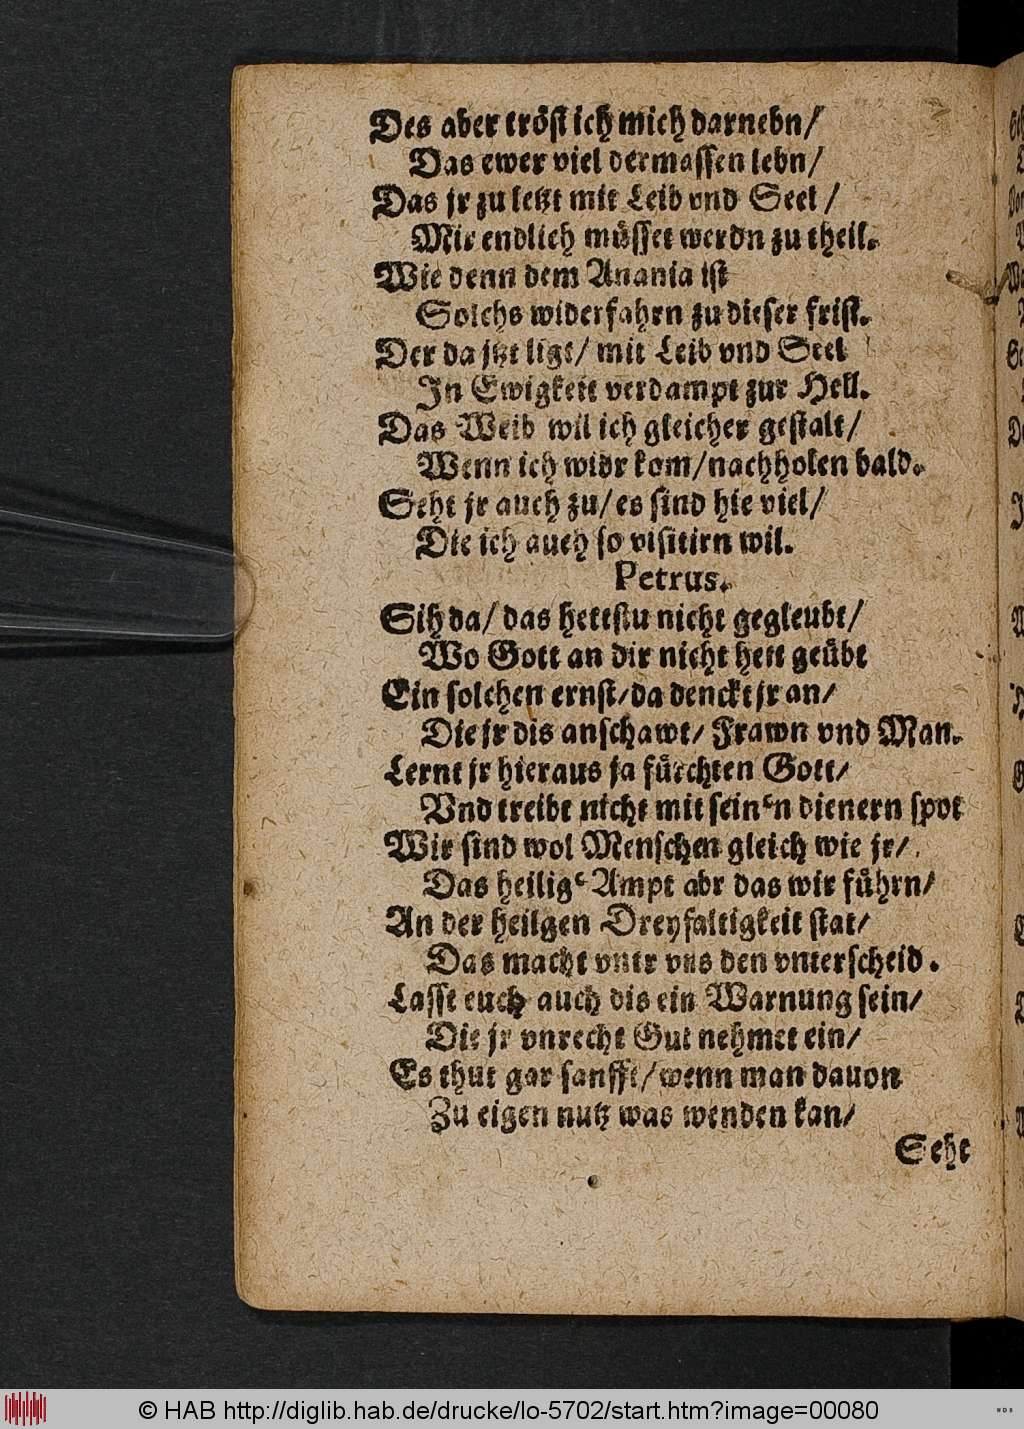 Des aber tröst ich mich darnebn/
Das ewer viel dermassen lebn/
Das jr zu letzt mit Leib vnd Seel/
Mir endlich müsset werdn zu theil.
Wie denn dem Anania ist
Solchs widerfahrn zu dieser frist.
Der da jtzt ligt/ mit Leib vnd Seel
In Ewigkeit verdampt zur Hell.
Das Weib wil ich gleicher gestalt/
Wenn ich widr kom/ nachholen bald.
Seht jr auch zu/ es sind hie viel/
Die ich auch so visitirn wil.
Petrus.
Sih da/ das hettstu nicht gegleubt/
Wo Gott an dir nicht hett geübt
Ein solchen ernst/ da denckt jr an/
Die jr dis anschawt/ Frawn vnd Man.
Lernt jr hieraus ja fürchten Gott/
Vnd treibt nicht mit seinen dienern spot
Wir sind wol Menschen gleich wie jr/
Das heilige Ampt abr das wir führn/
An der heilgen Dreyfaltigkeit stat/
Das macht vntr vns den vnterscheid.
Lasst euch auch dis ein Warnung sein/
Die jr vnrecht Gut nehmet ein/
Es thut gar sanfft/ wenn man dauon
Zu eigen nutz was wenden kan/
Seht
© HAB http://diglib.hab.de/drucke/lo-5702/start.htm?image=00080